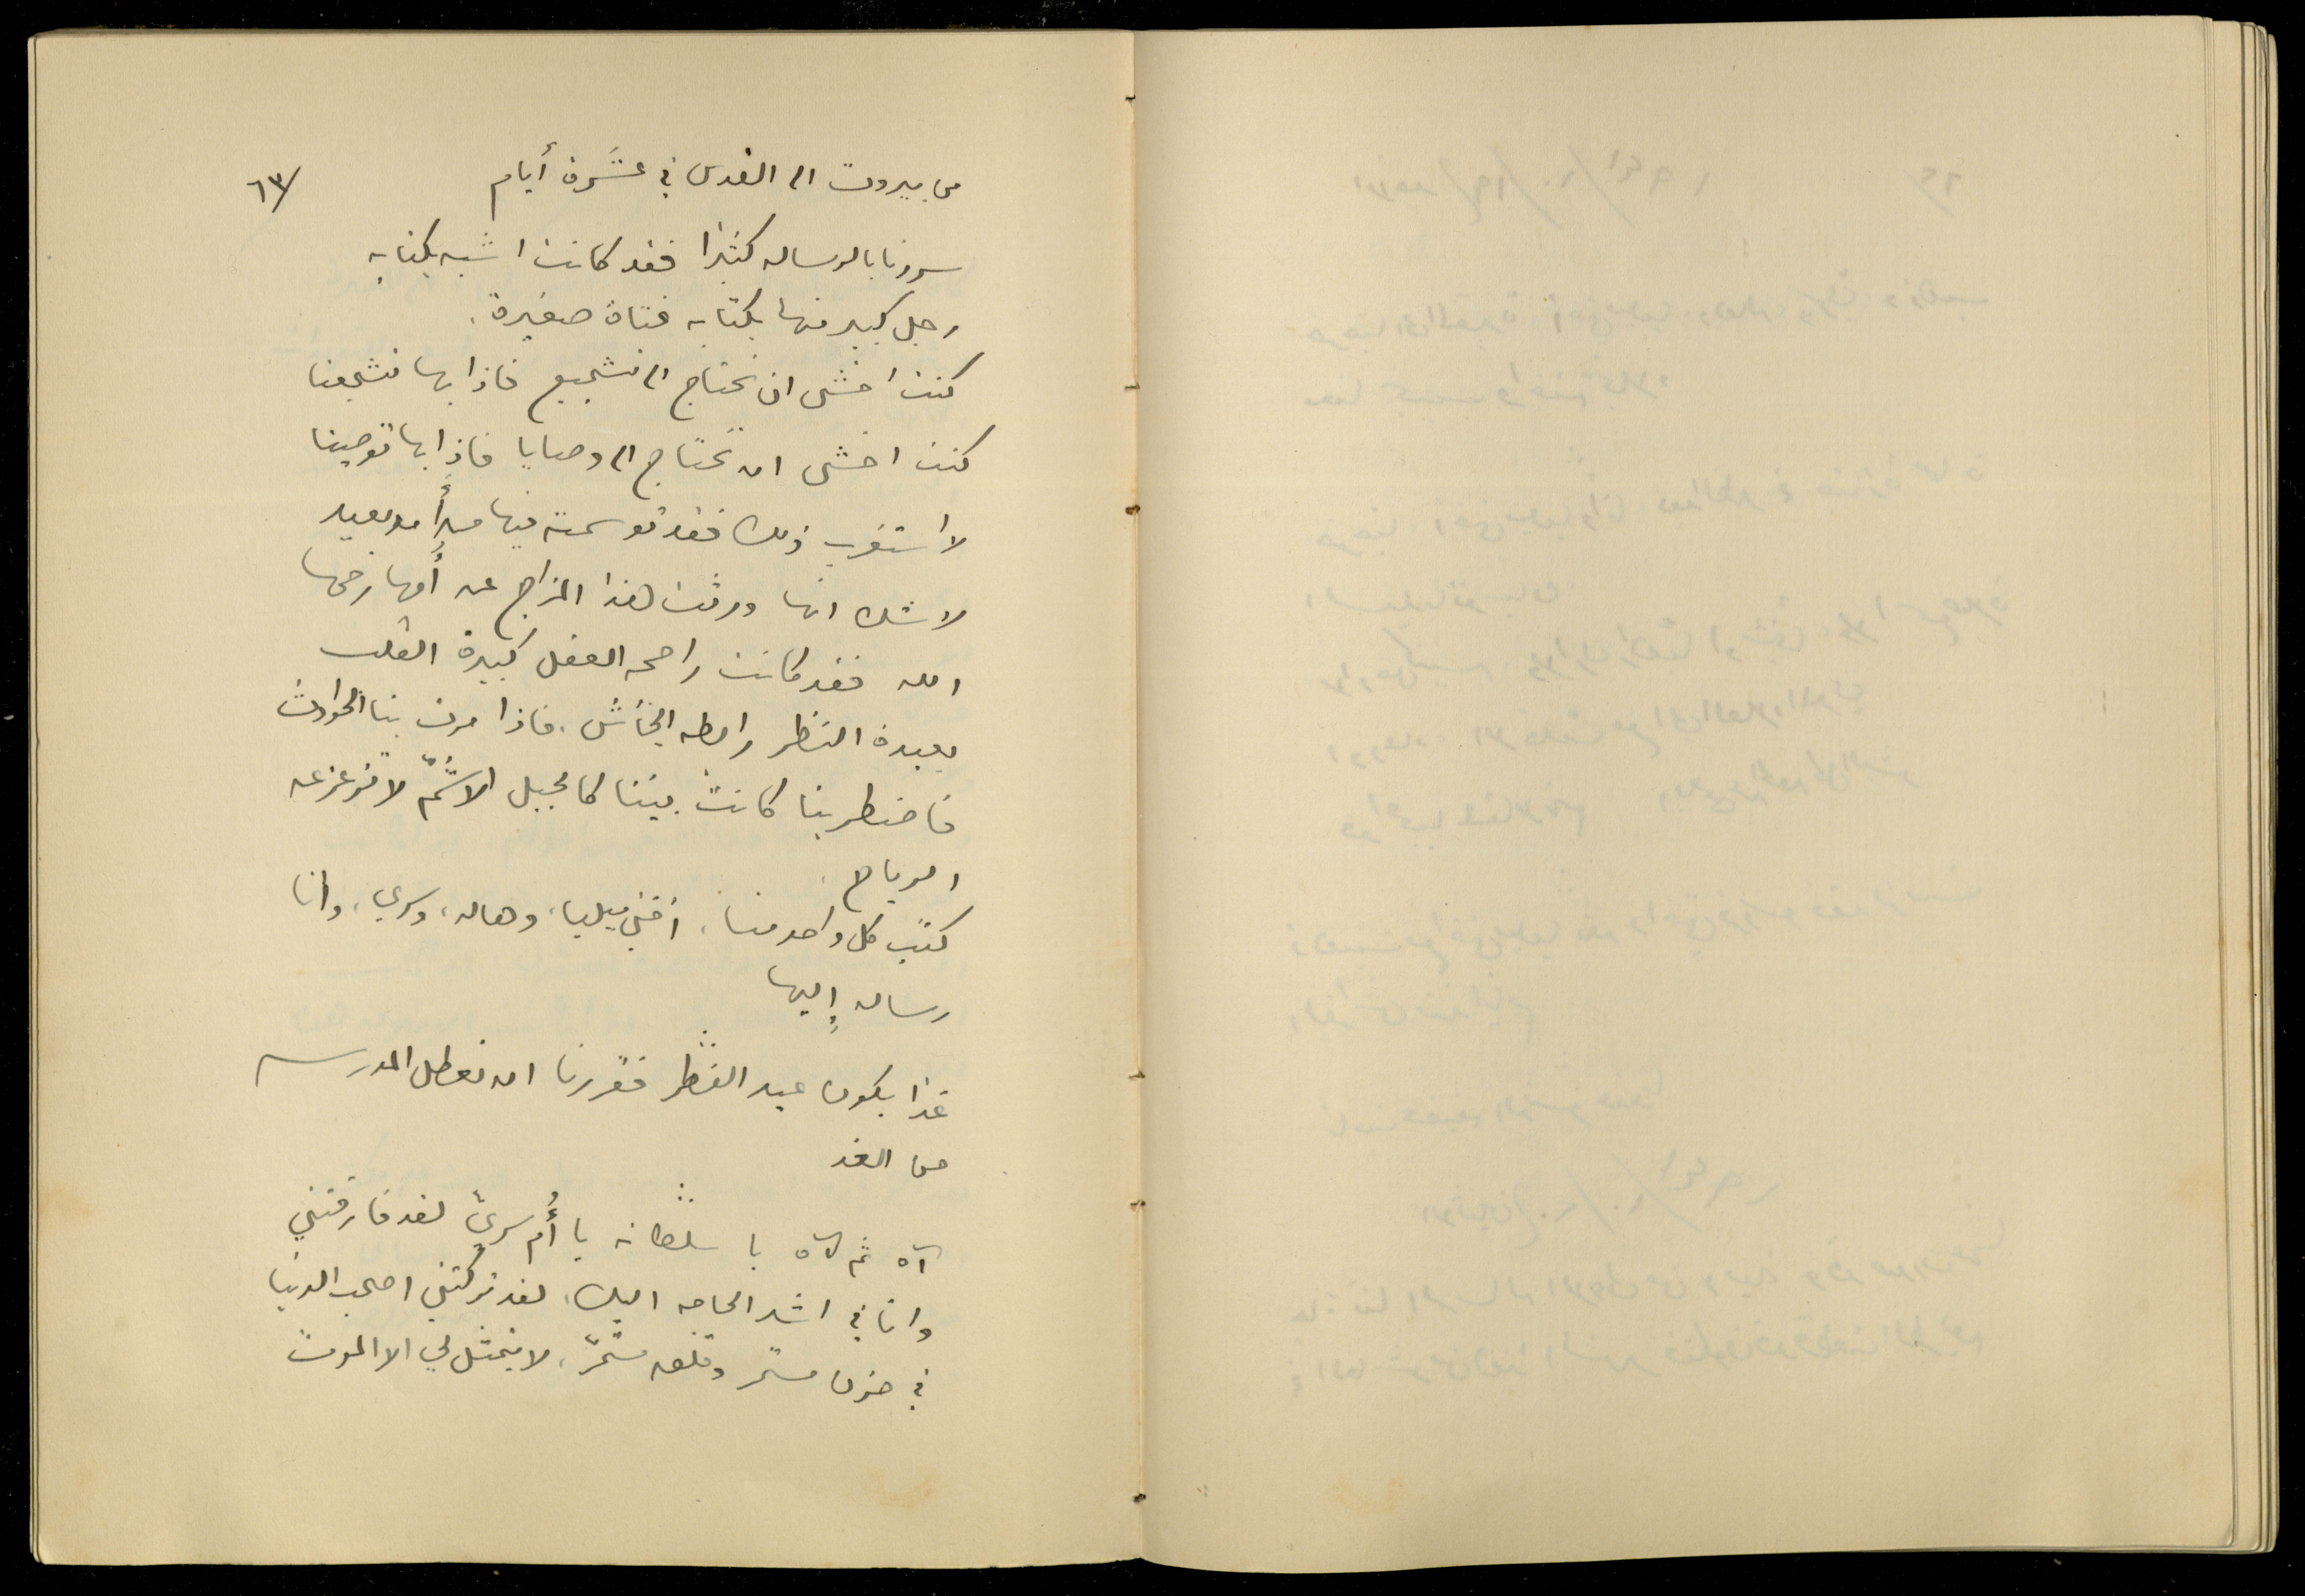 ٦٣/
من بيروت الى القدس في عشَرة أيام
سررنا بالرساله كثيرا فقد كانت اشبه بكتابه
رجل كبير منها بكتابه فتاة صغيرة.
كنت اخشى ان تحتاج الى تشجيع فاذا بها تشجعنا
كنت اخشى ان تحتاج الى وصايا فاذا بها توصينا
لا استغرب ذلك فقد توسمته فيها مبدأ من بعيد
لا شك انها ورثت هذا المزاج عن أمها رحمها
الله فقد كانت راجحه العقل كبيرة القلب
بعيدة النظر رابطه الجأش. فاذا مرت بنا الحوادث
فاضطربنا كانت بيننا كالجبل الاشمّ لا تزعزعه
الرياح.
كتب كل واحد منا، اختي ميليا، وهاله، وسري، وانا
رساله إليها
غدا يكون عيد الفطر فقررنا ان نعطل المدرسه
من الغد
آه ثم آه يا سلطانه يا أُم سريّ لقد فارقتني
وانا في اشد الحاجه اليك، لقد تركتني اصحب الدنيا
في حزن مستمر وقلق مستمرّ، لا يتمثل لي الا الموت